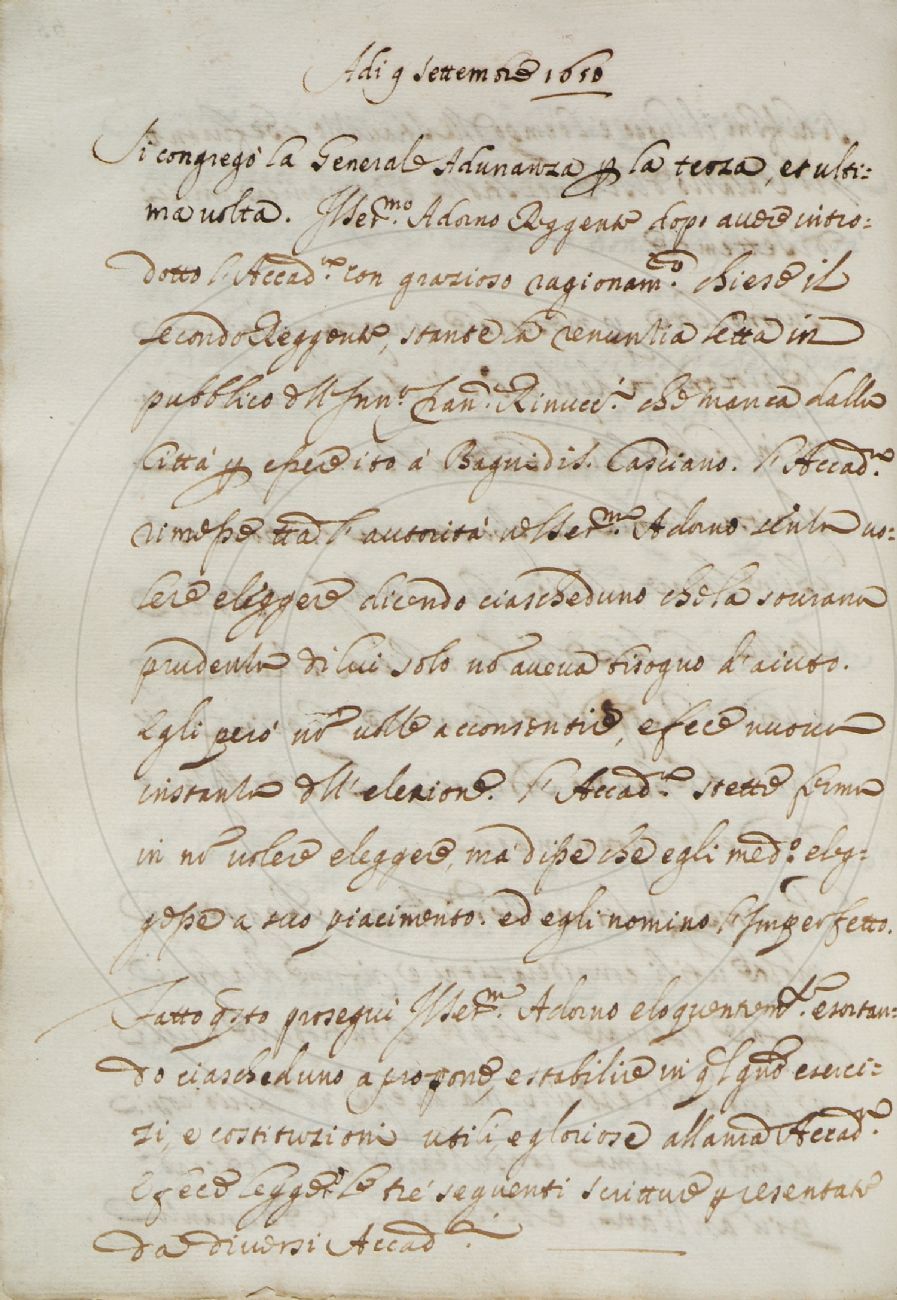 Adi 9 Settembre 1650
Si congregò la Generale Adunanza p la terza, et ulti=
ma volta. Il Ser.mo Adorno Reggente dopo avere intro=
dotto l'Accad.a con grazioso ragionam.to chiese il
secondo Reggente, stante la renuntia letta in
pubblico dell'Inn.o Rinucc.i che manca dalla
Città p essere ito à Bagni di S. Casciano. L'Accad.a
rimesse tta l'autorità nel Ser.mo Adorno senza vo=
lere eleggere dicendo ciascheduno che la sourana
prudenza di lui solo nō aveva bisogno d'aiuto.
Egli però nō volle acconsentire, e fece nuova
instanza dell'elezione. L'Accad.a stette ferma
in nō volere eleggere, ma disse che egli med.o eleg=
gesse a suo piacimento. ed egli nominò l'Imperfetto.
Fatto qsto proseguì Il Ser.mo Adorno eloquentem.te esortan=
do ciascheduno a proporre, e stabilire in eserci=
zi, e costituzioni utili, e gloriose alla nrā Accad.a
E fece legger le tre seguenti scritture presentate
da diversi Accad.i